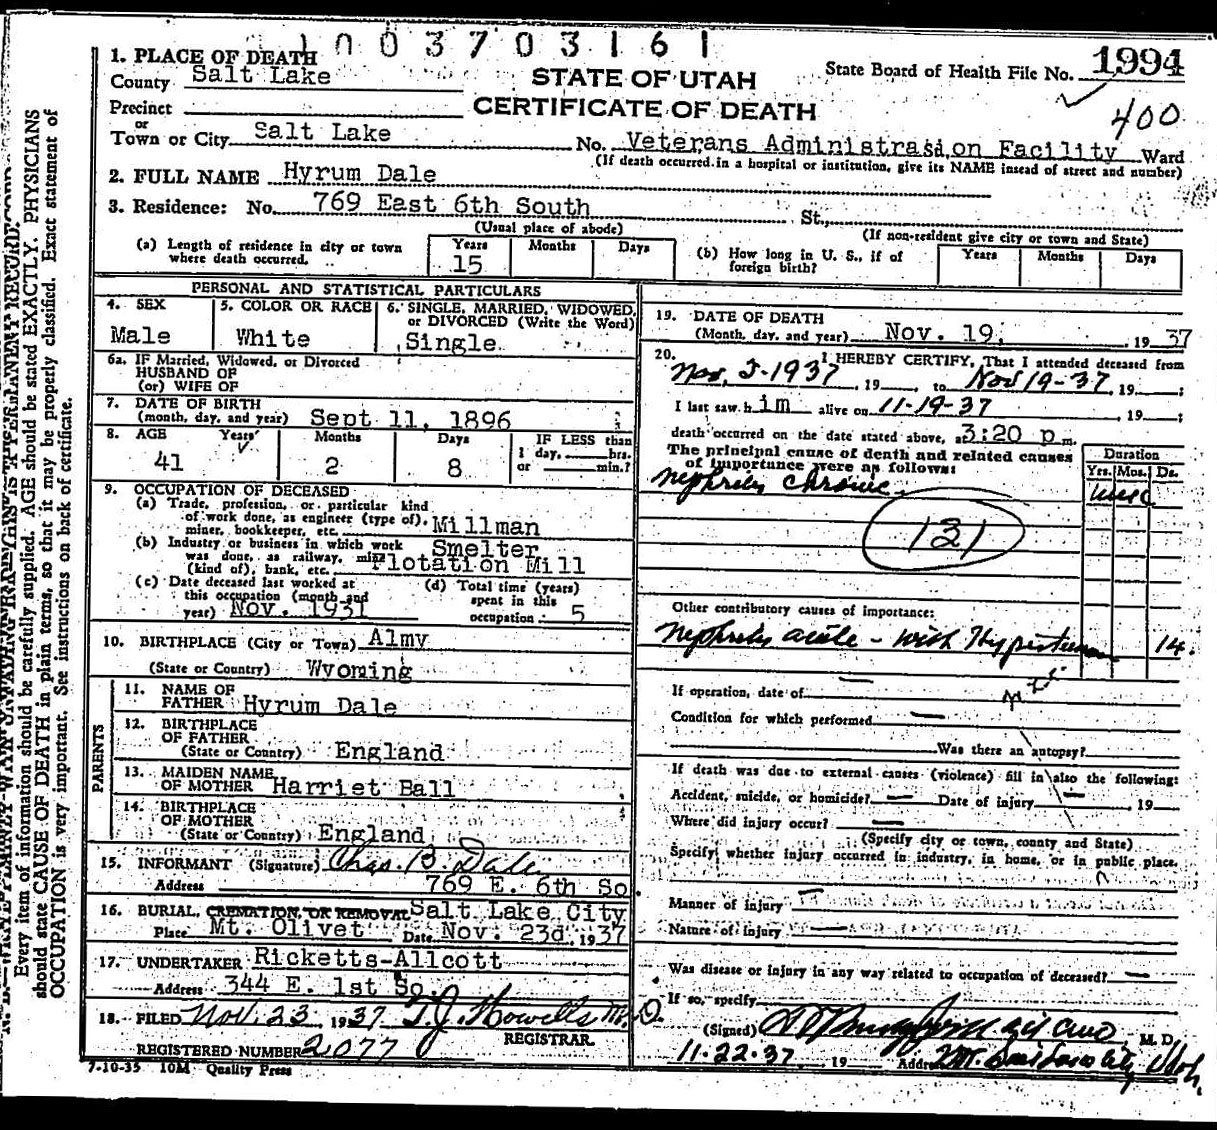 1003703161
1. PLACE OF DEATH
County Salt Lake
STATE OF UTAH
State Board of Health File No. 1994
Precinct
CERTIFICATE OF DEATH
400
or
Town or City Salt Lake No. Veterans Administrasion Facility Ward
(If death occurred in a hospital or institution, give its NAME insead of street and number)
2. FULL NAME Hyrum Dale
3. Residence: No. 769 East 6th South St.,
(Usual place of abode)
(If non-resident give city or town and State)
(a) Length of residence in city or town where death occurred. Years 15 Months Days
(b) How long in U. S., if of foreign birth? Years Months Days
PERSONAL AND STATISTICAL PARTICULARS
4. SEX
Male
5. COLOR OR RACE
White
6. SINGLE, MARRIED, WIDOWED, or DIVORCED (Write the Word)
Single
6a. IF Married, Widowed, or Divorced
HUSBAND OF
(or) WIFE OF
7. DATE OF BIRTH
(month, day, and year) Sept 11, 1896
8. AGE Years Months Days IF LESS than
41 2 8 1 day, hrs. or min.?
9. OCCUPATION OF DECEASED
(a) Trade, profession, or particular kind
of work done, as engineer (type of),
miner, bookkeeper, etc. Millman
(b) Industry or business in which work Smelter
was done, as railway, mine
(kind of), bank, etc. Flotation Mill
(c) Date deceased last worked at
this occupation (month and
year) Nov. 1931
(d) Total time (years)
spent in this
occupation 5
10. BIRTHPLACE (City or Town) Almy
(State or Country) Wyoming
PARENTS
11. NAME OF
FATHER Hyrum Dale
12. BIRTHPLACE
OF FATHER
(State or Country) England
13. MAIDEN NAME
OF MOTHER Harriet Ball
14. BIRTHPLACE
OF MOTHER
(State or Country) England
15. INFORMANT (Signature) Chas. B. Dale
Address 769 E. 6th So.
16. BURIAL, CREMATION, OR REMOVAL Salt Lake City
Place Mt. Olivet Date Nov. 23d, 1937
17. UNDERTAKER Ricketts-Allcott
Address 344 E. 1st So.
18. FILED Nov. 23, 1937 T.J. Howells M.D.
REGISTRAR.
REGISTERED NUMBER 2077
7-10-35 10M Quality Press
19. DATE OF DEATH
(Month, day, and year) Nov. 19, 1937
20. I HEREBY CERTIFY, That I attended deceased from
Nov, 5-1937, 19 , to Nov 19-37, 19 ;
I last saw him alive on 11-19-37, 19 ;
death occurred on the date stated above, at 3:20 p m.
The principal cause of death and related causes
of importance were as follows:
Duration
Yrs. Mos. Ds.
Nephritis chronic.
121
Other contributory causes of importance:
Nephritis acute - with Hypertension 14.
If operation, date of
Condition for which performed
Was there an autopsy?
If death was due to external causes (violence) fill in also the following:
Accident, suicide, or homicide? Date of injury , 19
Where did injury occur?
(Specify city or town, county and State)
Specify whether injury occurred in industry, in home, or in public place.
Manner of injury
Nature of injury
Was disease or injury in any way related to occupation of deceased?
If so, specify
(Signed) M. D.
11-22-37, 19 Address
Every item of information should be carefully supplied. AGE should be stated EXACTLY. PHYSICIANS
should state CAUSE OF DEATH in plain terms, so that it may be properly classified. Exact statement of
OCCUPATION is very important. See instructions on back of certificate.